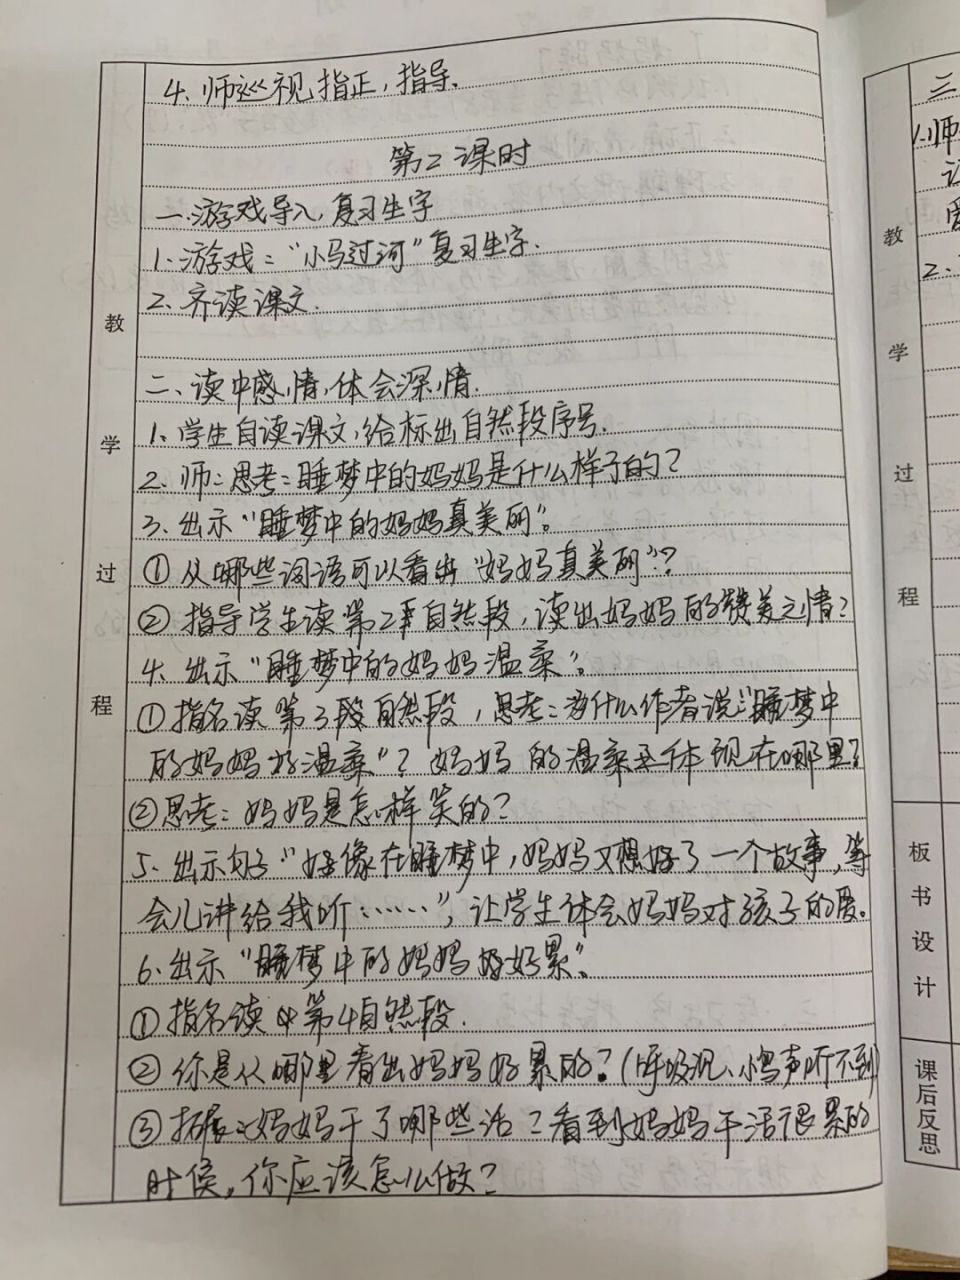 4、师巡视,指正,指导.
第2课时
一.游戏导入,复习生字
1.游戏:“小马过河”复习生字.
2、齐读课文.
二、读中感情,体会深情.
1、学生自读课文,给标出自然段序号.
2、师:思考:睡梦中的妈妈是什么样子的?
3、出示“睡梦中的妈妈真美丽”。
①从哪些词语可以看出“妈妈真美丽”?
②指导学生读第2自然段,读出妈妈的赞美之情?
4、出示“睡梦中的妈妈温柔”。
①指名读第3段自然段,思考:为什么作者说:“睡梦中
的妈妈好温柔”?妈妈的温柔体现在哪里?
②思考:妈妈是怎样笑的?
5、出示句子“好像在睡梦中,妈妈又想好了一个故事,等
会儿讲给我听……”,让学生体会妈妈对孩子的爱。
6、出示“睡梦中的妈妈好累”。
①指名读第4自然段.
②你是从哪里看出妈妈好累的?(呼吸沉、小鸟声听不到)
③拓展:妈妈干了哪些活?看到妈妈干活很累的
时候,你应该怎么做?
教
学
过
程
三
1.师
2.
教
学
过
程
板
书
设
计
课
后
反
思